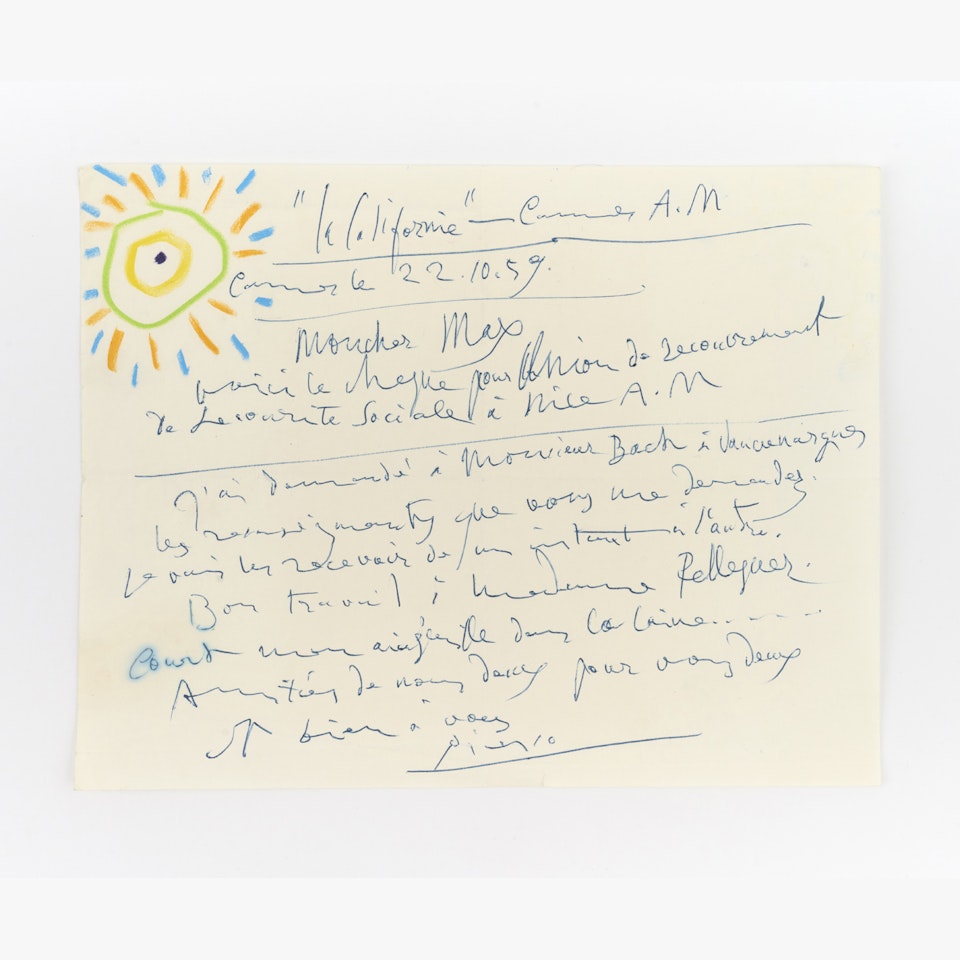 "la Californie" — Cannes A.M
Cannes le 22.10.59.
Moncher Max
voici le cheque pour Union de recouvrement
de Securite Sociale à Nice A.M
J'ai demandé à Monsieur Bach à Vauvenargues
les renseignments que vous me demandez.
Je vais les recevoir de un instant à l'autre.
Bon travail à Madame Pellequer.
Court mon aiguille dans la laine......
Amitiés de nous deux pour vous deux
et bien à vous
Picasso